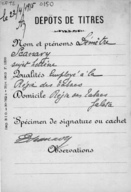 le 22/4/95
DÉPÔTS DE TITRES
Nom et prénoms Dimitri
sujet hellène
Qualités Employé à la
Régie des Tabacs
Domicile Régie des Tabacs
Galata
Spécimen de signature ou cachet
Observations